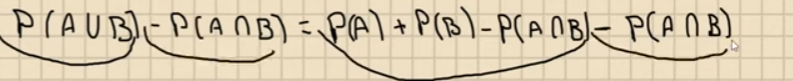 P(A∪B)-P(A∩B)=P(A)+P(B)-P(A∩B)-P(A∩B)